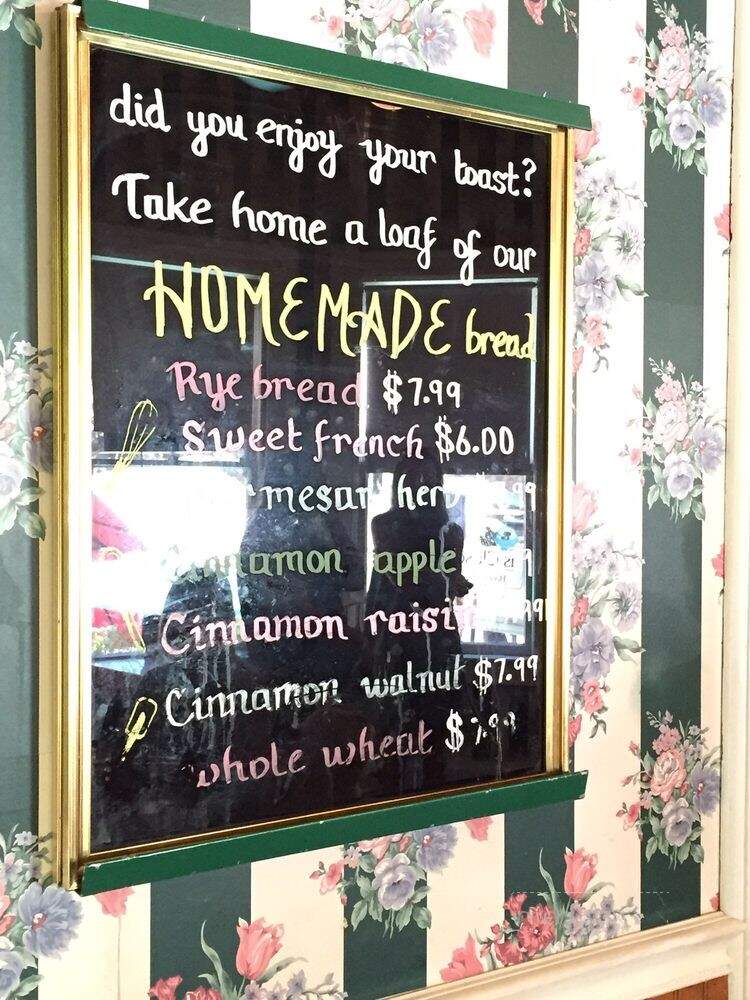 did you enjoy your toast?
Take home a loaf of our
HOMEMADE bread
Rye bread $7.99
Sweet french $6.00
herb
Cinnamon apple
Cinnamon raisin
Cinnamon walnut $7.99
whole wheat $7.99